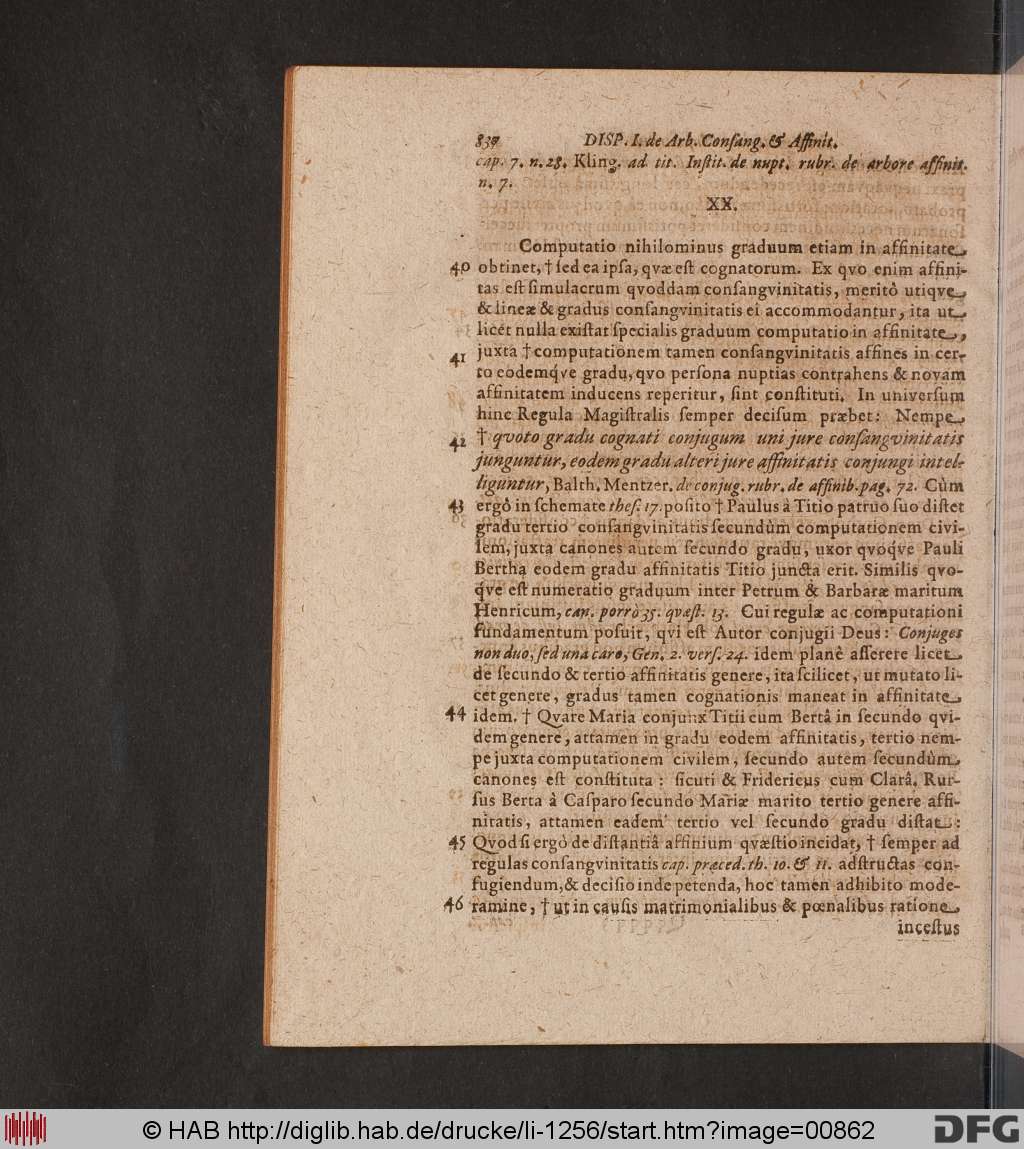 837 DISP. I. de Arb. Conſang. & Affinit.
cap. 7. n. 28. Kling. ad tit. Inſtit. de nupt. rubr. de arbore affinit.
n. 7.
XX.
Computatio nihilominus graduum etiam in affinitate
40 obtinet, † ſed ea ipſa, qvæ eſt cognatorum. Ex qvo enim affini-
tas eſt ſimulacrum qvoddam conſangvinitatis, meritò utiqve
& lineæ & gradus conſangvinitatis ei accommodantur, ita ut
licèt nulla exiſtat ſpecialis graduum computatio in affinitate,
41 juxta † computationem tamen conſangvinitatis affines in cer-
to eodemq́ve gradu, qvo perſona nuptias contrahens & novam
affinitatem inducens reperitur, ſint conſtituti. In univerſum
hinc Regula Magiſtralis ſemper deciſum præbet: Nempe
42 † qvoto gradu cognati conjugum uni jure conſangvinitatis
junguntur, eodem gradu alteri jure affinitatis conjungi intel-
liguntur, Balth. Mentzer. de conjug. rubr. de affinib. pag. 72. Cùm
43 ergò in ſchemate theſ. 17. poſito † Paulus à Titio patruo ſuo diſtet
gradu tertio conſangvinitatis ſecundùm computationem civi-
lem, juxta canones autem ſecundo gradu, uxor qvoq́ve Pauli
Bertha eodem gradu affinitatis Titio juncta erit. Similis qvo-
q́ve eſt numeratio graduum inter Petrum & Barbaræ maritum
Henricum, can. porrò 35. qvæſt. 13. Cui regulæ ac computationi
fundamentum poſuit, qvi eſt Autor conjugii Deus: Conjuges
non duo, ſed una caro, Gen. 2. verſ. 24. idem planè aſſerere licet
de ſecundo & tertio affinitatis genere, ita ſcilicet, ut mutato li-
cet genere, gradus tamen cognationis maneat in affinitate
44 idem. † Qvare Maria conjunx Titii cum Bertâ in ſecundo qvi-
dem genere, attamen in gradu eodem affinitatis, tertio nem-
pe juxta computationem civilem, ſecundo autem ſecundùm
canones eſt conſtituta: ſicuti & Fridericus cum Clarâ. Rur-
ſus Berta à Caſparo ſecundo Mariæ marito tertio genere affi-
nitatis, attamen eadem tertio vel ſecundo gradu diſtat:
45 Qvod ſi ergò de diſtantiâ affinium qvæſtio incidat, † ſemper ad
regulas conſangvinitatis cap. præced. th. 10. & 11. adſtructas con-
fugiendum, & deciſio inde petenda, hoc tamen adhibito mode-
46 ramine, † ut in cauſis matrimonialibus & pœnalibus ratione
inceſtus
© HAB http://diglib.hab.de/drucke/li-1256/start.htm?image=00862
DFG